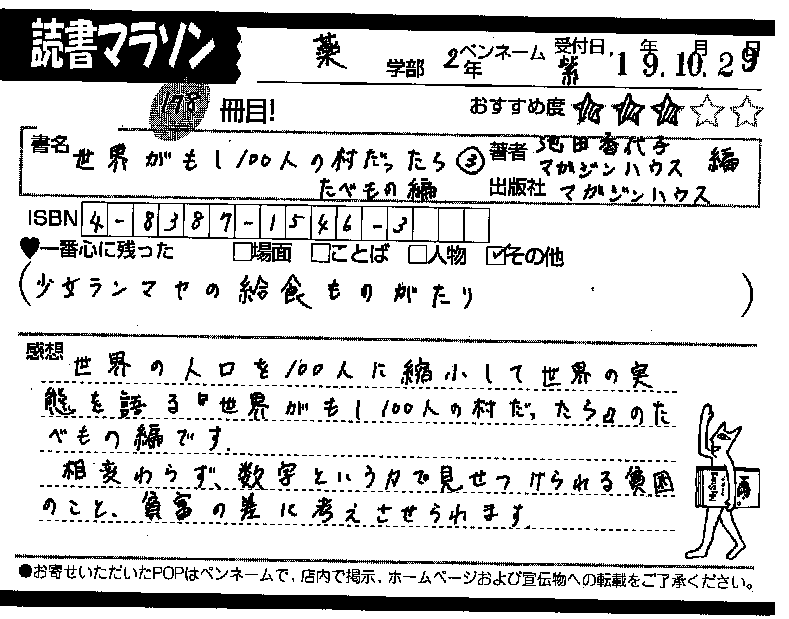 読書マラソン
薬 学部 2年 ペンネーム 紫 受付日 '19年10月29日
178 冊目!
おすすめ度 ★★★☆☆
書名 世界がもし100人の村だったら③
たべもの編
著者 池田香代子
マガジンハウス 編
出版社 マガジンハウス
ISBN 4-8387-1546-3
♥一番心に残った □場面 □ことば □人物 ☑その他
(少女ランマヤの給食ものがたり)
感想 世界の人口を100人に縮小して世界の実
態を語る『世界がもし100人の村だったら』のた
べもの編です。
相変わらず、数字という力で見せつけられる貧困
のこと、貧富の差に考えさせられます。
●お寄せいただいたPOPはペンネームで、店内で掲示、ホームページおよび宣伝物への転載をご了承ください。